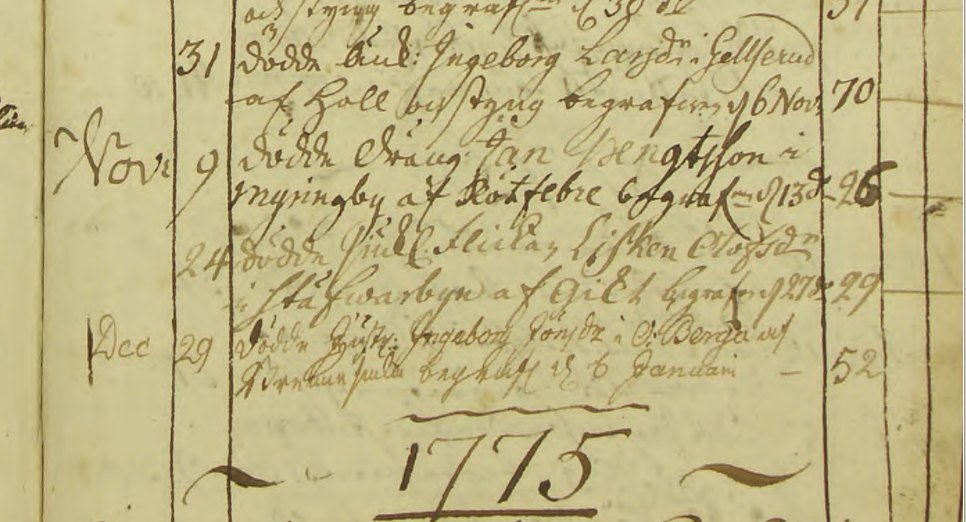 och styng begraf d 30 31
31 dödde Enk: Ingeborg Larsdr i Gellserud
af Håll och styng begrafven d 6 Nov: 70
Nov: 9 dödde Dräng Jan Bengtsson i
Myringby af Rötfebre begrafn d 13 d 26
24 dödde Flickan Lisken Olofsdr
i Stafwarbyn af Gickt begrafn d 27 29
Dec 29 dödde Hustr: Ingeborg Jönsdr i Ö. Berga af
begraf d 6 Januari – 52
~ 1775 ~